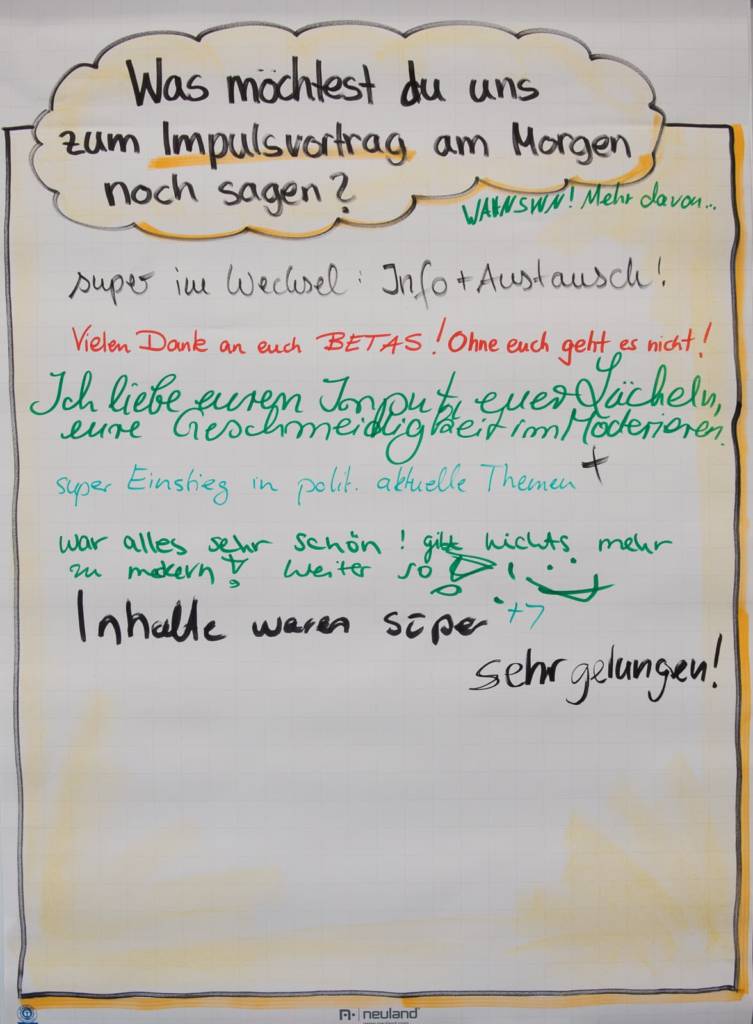 Was möchtest du uns
zum Impulsvortrag am Morgen
noch sagen?
WAHNSINN! Mehr davon...
super im Wechsel: Info + Austausch!
Vielen Dank an euch BETAS! Ohne euch geht es nicht!
Ich liebe euren Input, euer Lächeln,
eure Geschmeidigkeit im Moderieren.
super Einstieg in polit. aktuelle Themen +
war alles sehr schön! gibt nichts mehr
zu meckern! weiter so!
Inhalte waren super
+7
sehr gelungen!
neuland